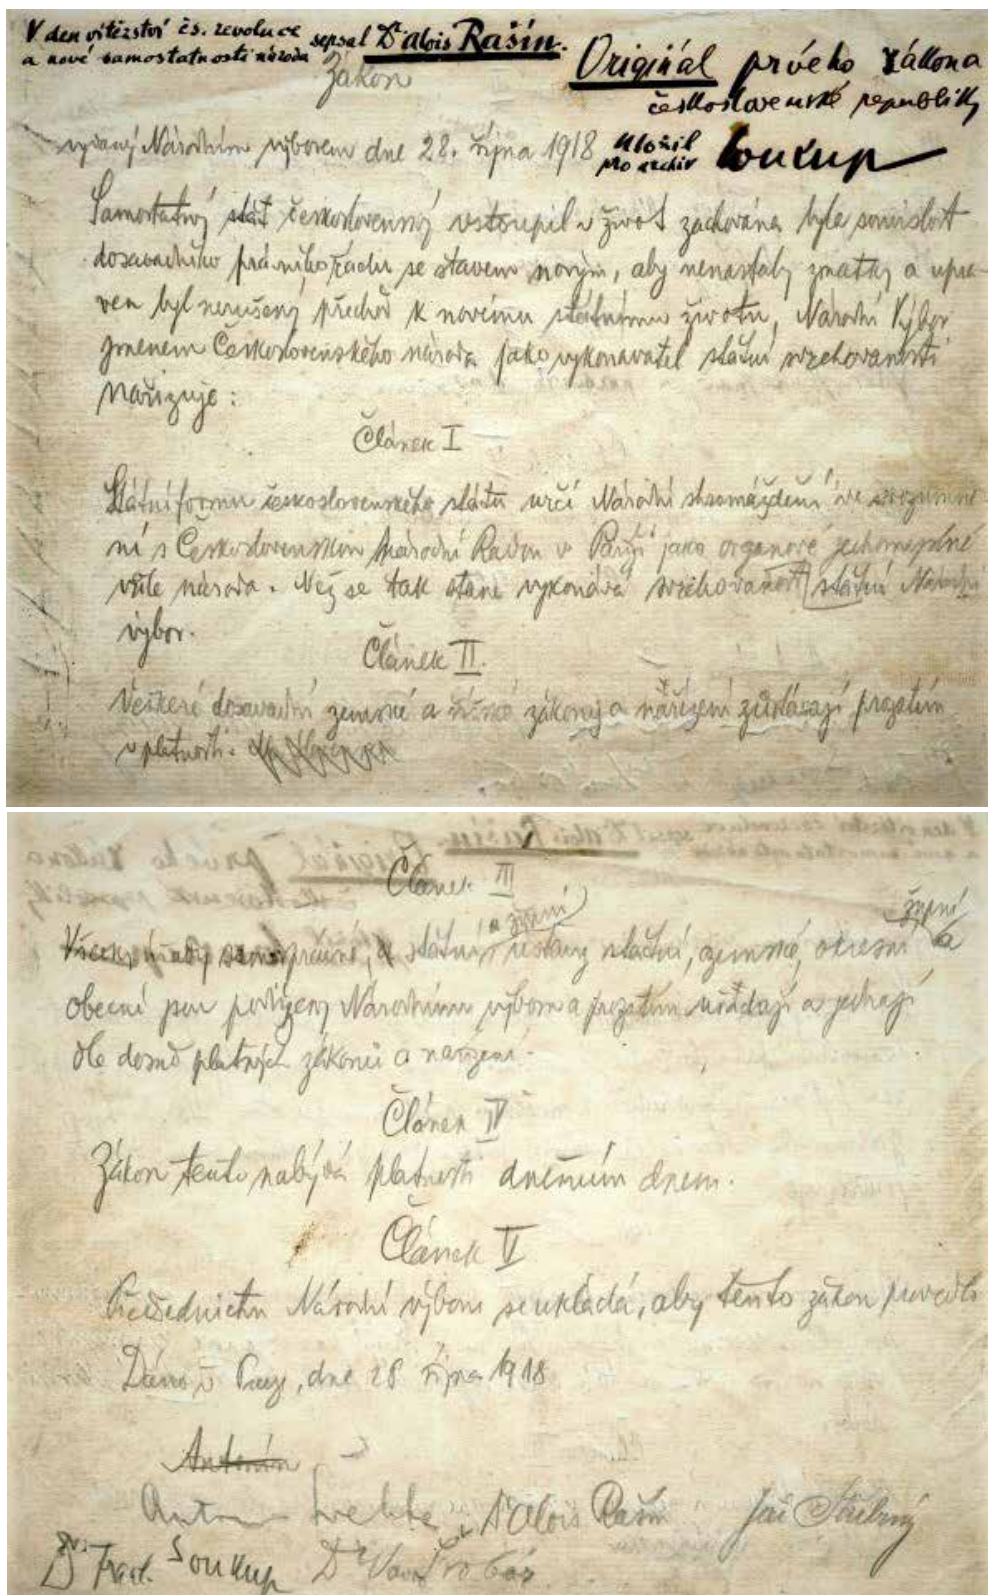 V den vítězství čs. revoluce
a nové samostatnosti národa
sepsal Dr Alois Rašín.
Originál prvého zákona
československé republiky
uložil
pro archiv
Soukup
Zákon
vydaný Národním výborem dne 28. října 1918
Samostatný stát československý vstoupil v život zachována byla souvislost
dosavadního právního řádu se stavem novým, aby nenastaly zmatky a upra-
ven byl nerušený přechod k novému státnímu životu, Národní Výbor
jmenem Československého národa jako vykonavatel státní svrchovanosti
nařizuje:
Článek I
Státní formu československého státu určí Národní shromáždění ve srozumně
ní s Československou Národní Radou v Paříži jako organové jednomyslné
vůle národa. Než se tak stane vykonává svrchovanost státní Národní
výbor.
Článek II.
Veškeré dosavadní zemské a říšské zákony a nařízení zůstávají prozatím
v platnosti.
Článek III
samosprávné, státní a župní ústavy státní, zemské, okresní župní a
obecní jsou podřízeny Národnímu výboru a prozatím úřadují a jednají
dle dosud platných zákonů a nařízení.
Článek IV
Zákon tento nabývá platnosti dnešním dnem.
Článek V
Předsednictvu Národní výboru se ukládá, aby tento zákon provedlo
Dáno v Praze, dne 28 října 1918
Antonín
Antonín Švehla Dr Alois Rašín Jiří Stříbrný
Dr. Frant. Soukup Dr Vavro Šrobár